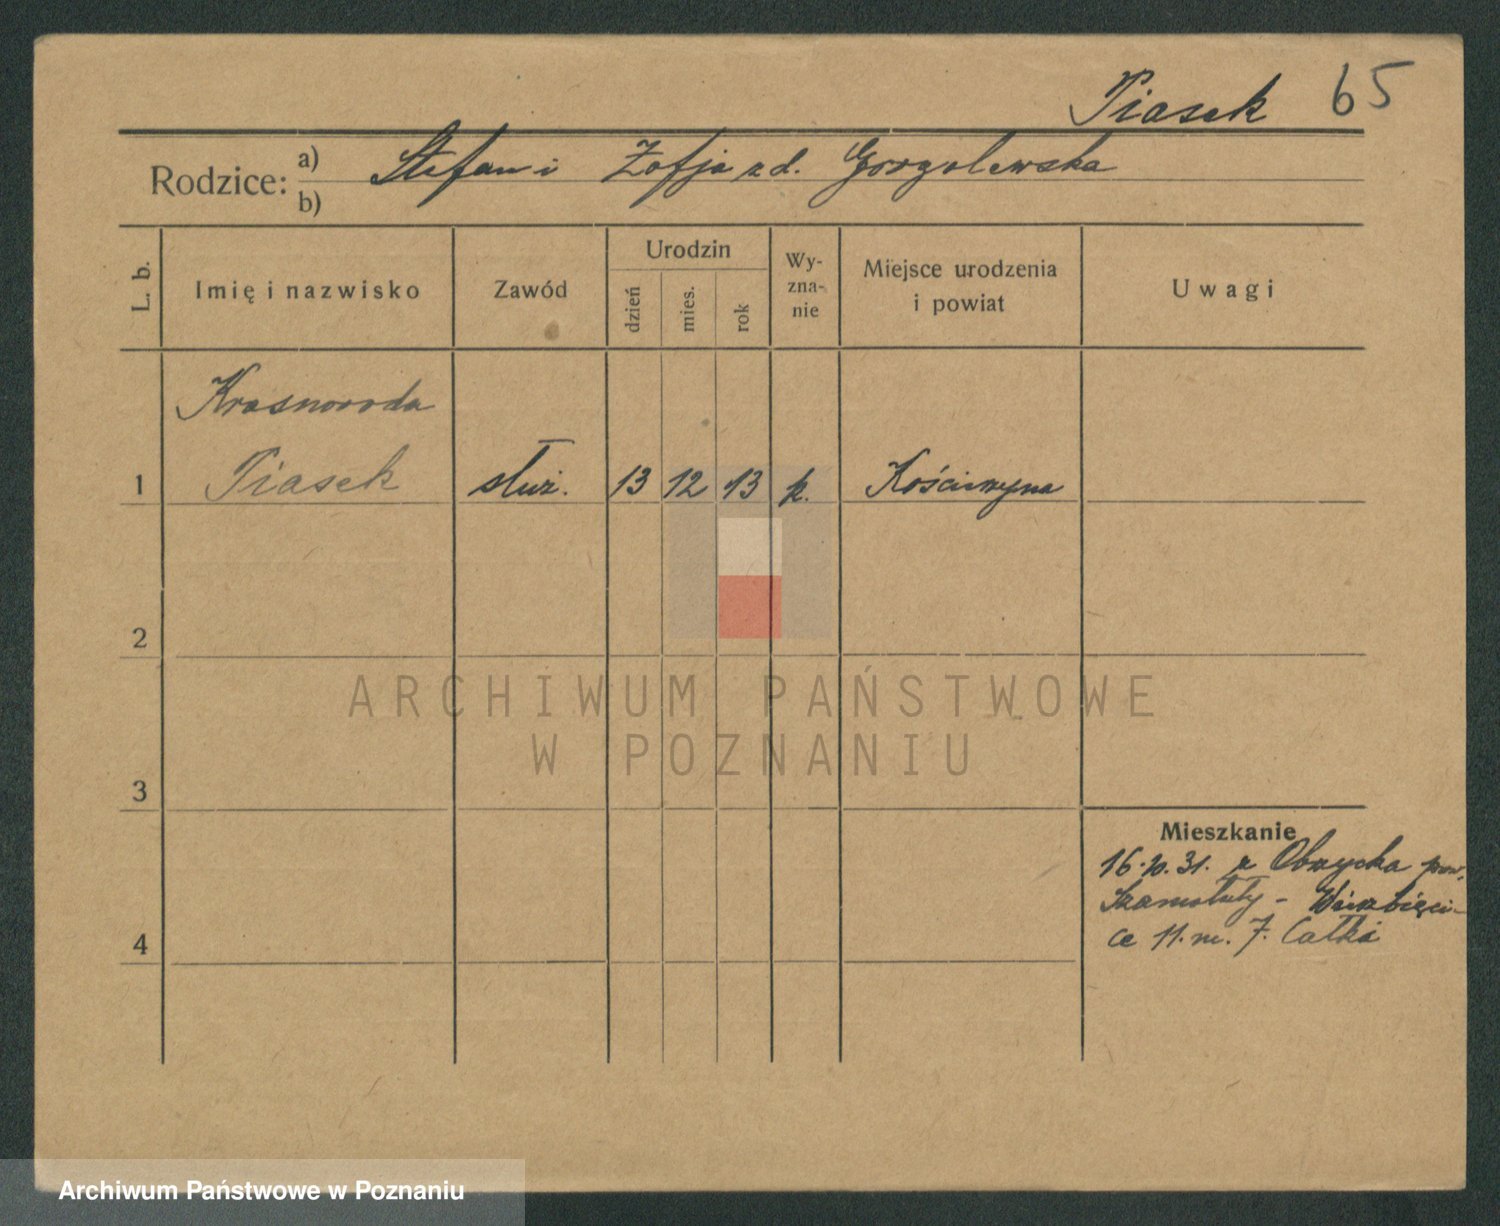 Piasek 65
Rodzice: a) Stefan i Zofja zd. Gorgolewska
b)
L. b.
Imię i nazwisko
Zawód
Urodzin
dzień
mies.
rok
Wy-
zna-
nie
Miejsce urodzenia
i powiat
Uwagi
Krasnoroda
1 Piasek służ. 13 12 13 k. Kościerzyna
2
3
4
ARCHIWUM PAŃSTWOWE
W POZNANIU
Mieszkanie
16.10.31. z Obrzycka pow.
Szamotuły - Wierzbięci-
ce 11. m. 7. Całka
Archiwum Państwowe w Poznaniu